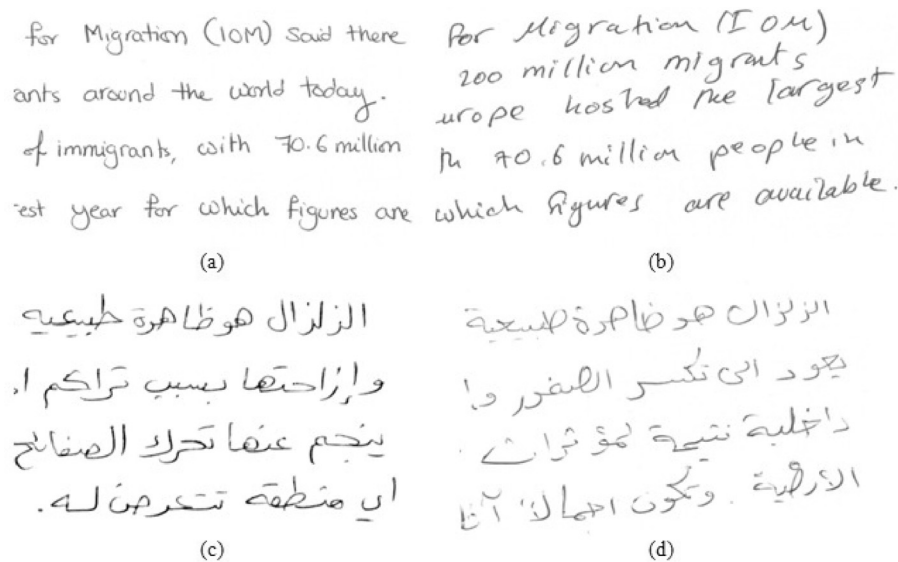 for Migration (IOM) said there
ants around the world today.
of immigrants, with 70.6 million
est year for which figures are
(a)
for Migration (IOM)
200 million migrants
urope hosted the largest
th 70.6 million people in
which figures are available.
(b)
الزلزال هو ظاهرة طبيعيه
وإزاحتها بسبب تراكم ا
ينجم عنها تحرك الصفائح
اي منطقه تتعرض له.
(c)
الزلزال هو ظاهرة طبيعية
يعود الى تكسر الصخور وا
داخلية نتيجة لمؤثرات
الارضية. وتكون اجمالا
(d)